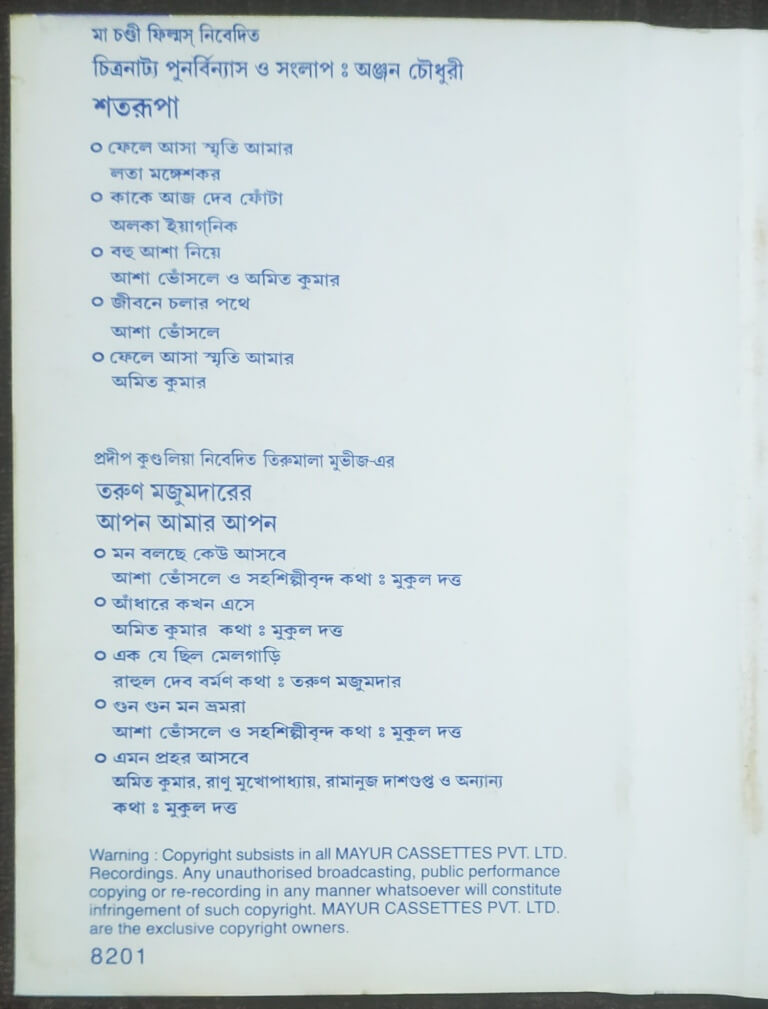 মা চণ্ডী ফিল্মস্ নিবেদিত
চিত্রনাট্য পুনর্বিন্যাস ও সংলাপ : অঞ্জন চৌধুরী
শতরূপা
o ফেলে আসা স্মৃতি আমার
লতা মঙ্গেশকর
o কাকে আজ দেব ফোঁটা
অলকা ইয়াগ্‌নিক
o বহু আশা নিয়ে
আশা ভোঁসলে ও অমিত কুমার
o জীবনে চলার পথে
আশা ভোঁসলে
o ফেলে আসা স্মৃতি আমার
অমিত কুমার
প্রদীপ কুণ্ডলিয়া নিবেদিত তিরুমালা মুভীজ-এর
তরুণ মজুমদারের
আপন আমার আপন
o মন বলছে কেউ আসবে
আশা ভোঁসলে ও সহশিল্পীবৃন্দ কথা : মুকুল দত্ত
o আঁধারে কখন এসে
অমিত কুমার কথা : মুকুল দত্ত
o এক যে ছিল মেলগাড়ি
রাহুল দেব বর্মণ কথা : তরুণ মজুমদার
o গুন গুন মন ভ্রমরা
আশা ভোঁসলে ও সহশিল্পীবৃন্দ কথা : মুকুল দত্ত
o এমন প্রহর আসবে
অমিত কুমার, রাণু মুখোপাধ্যায়, রামানুজ দাশগুপ্ত ও অন্যান্য
কথা : মুকুল দত্ত
Warning : Copyright subsists in all MAYUR CASSETTES PVT. LTD.
Recordings. Any unauthorised broadcasting, public performance
copying or re-recording in any manner whatsoever will constitute
infringement of such copyright. MAYUR CASSETTES PVT. LTD.
are the exclusive copyright owners.
8201